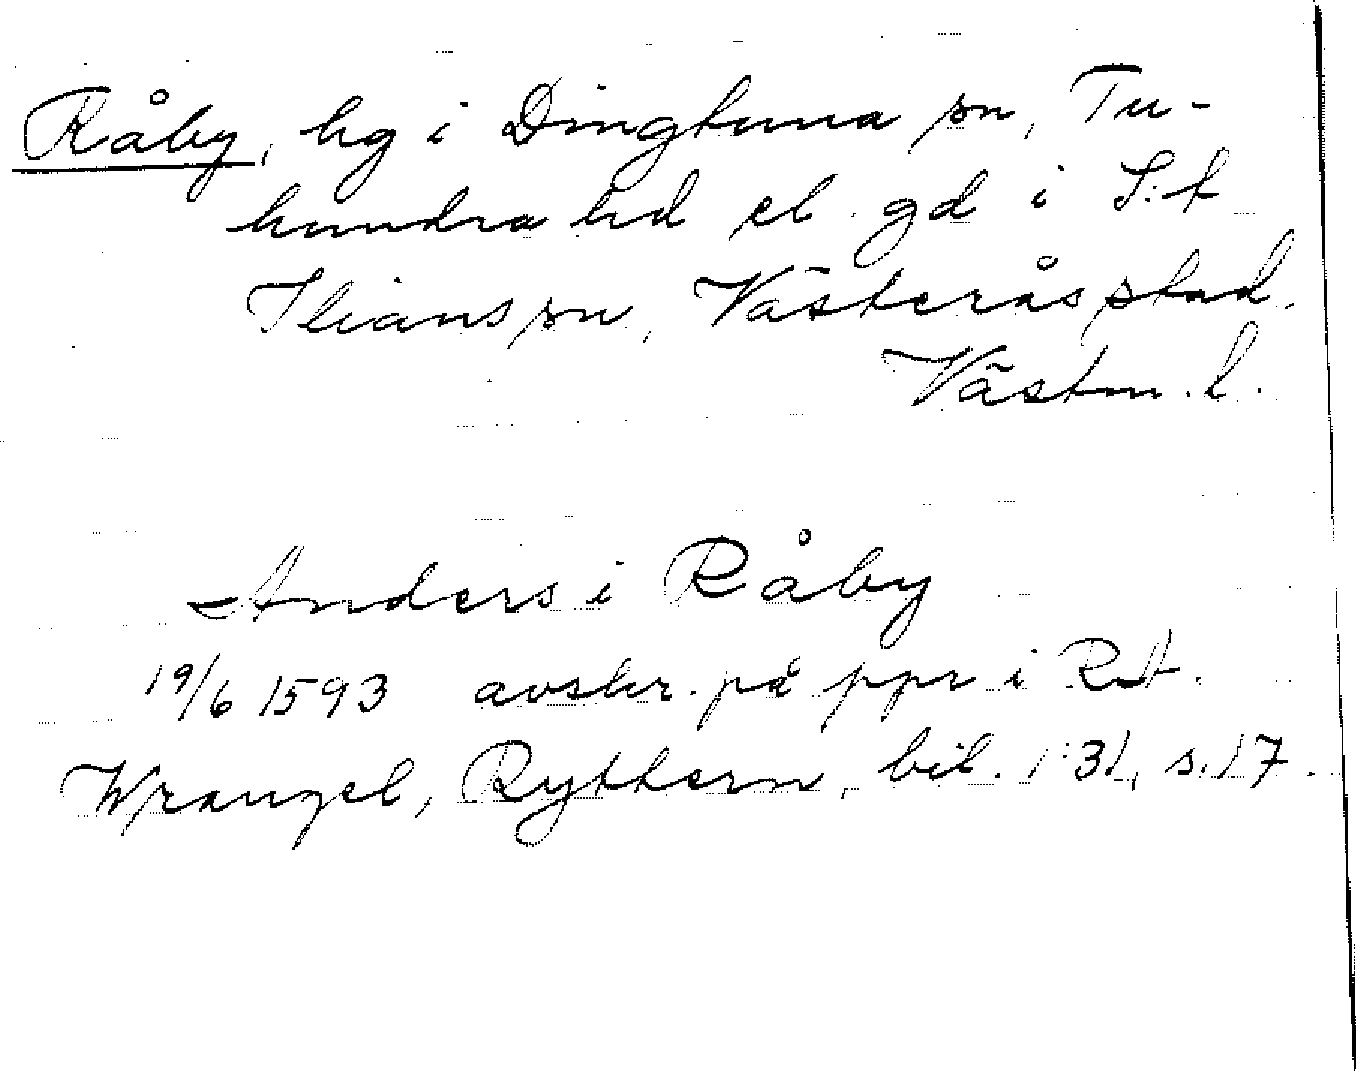 Råby, hg i Dingtuna sn, Tu-
hundra hd el. gd i S:t
Ilians sn, Västerås stad.
Västm. l.
Anders i Råby
19/6 1593 avskr. på ppr i RA.
Wrangel, Ryttern, bil. 1:31, s. 17.